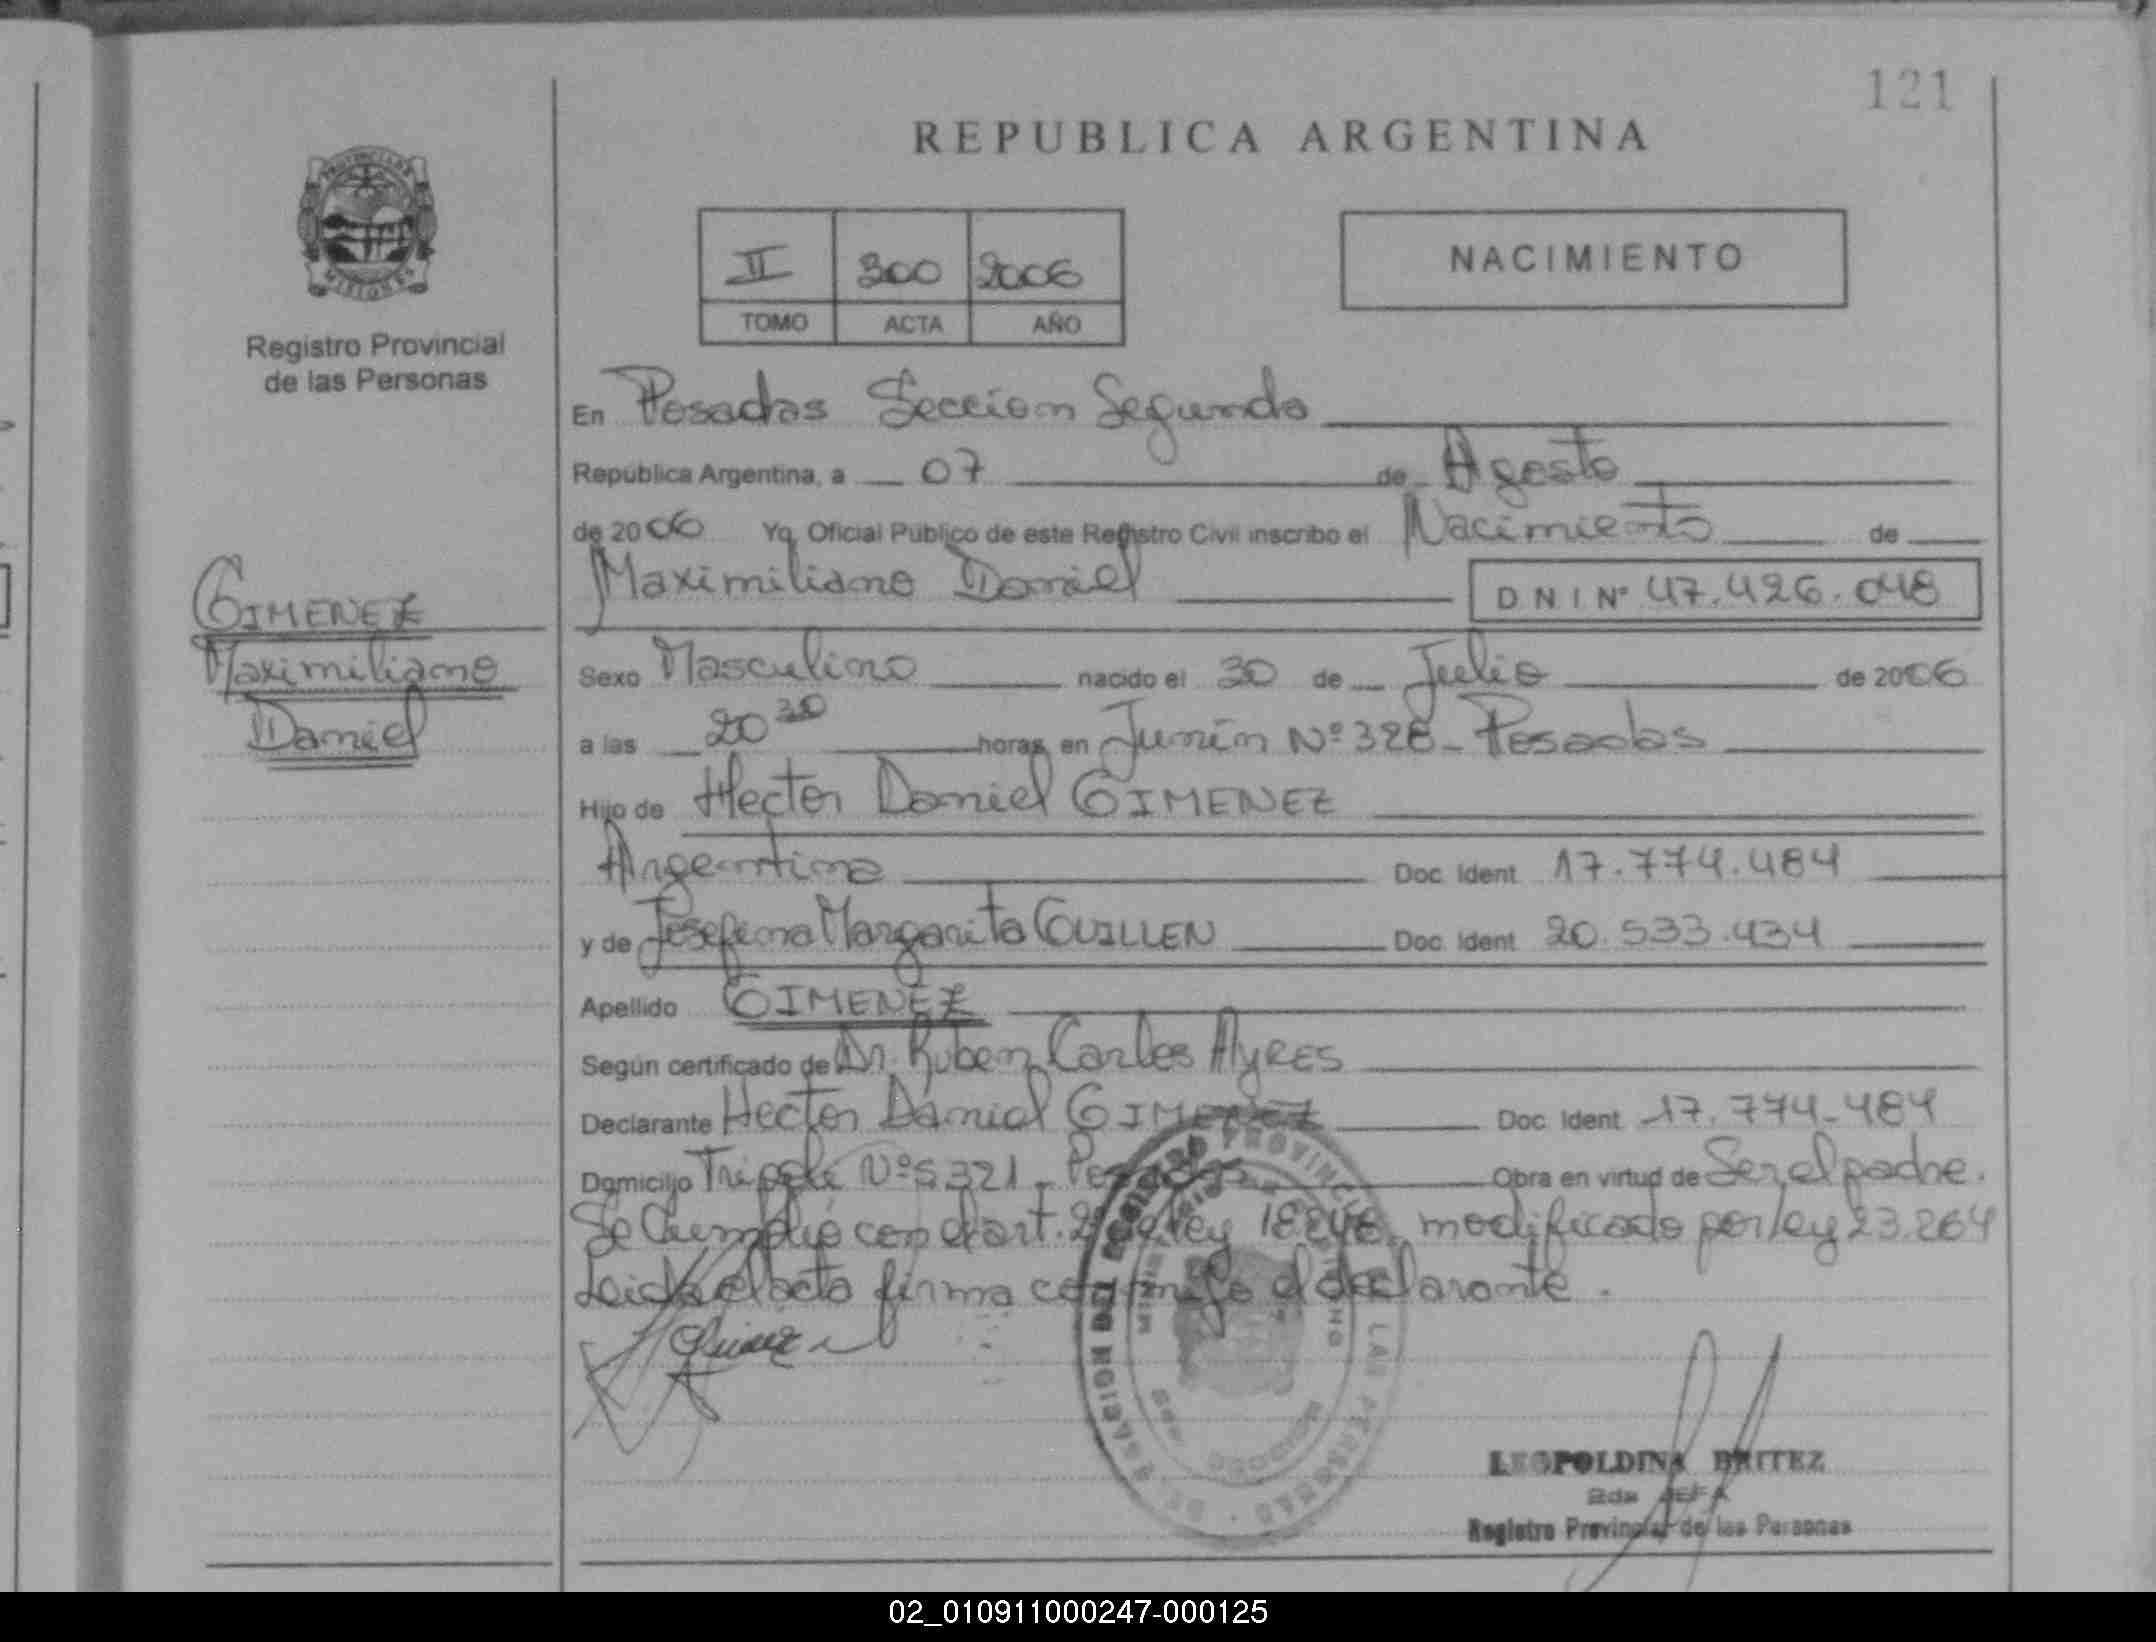 121
REPUBLICA ARGENTINA
PROVINCIA DE
MISIONES
Registro Provincial
de las Personas
II 300 2006
TOMO ACTA AÑO
NACIMIENTO
En Posadas Seccion Segunda
República Argentina, a 07 de Agosto
de 2006 Yo, Oficial Público de este Registro Civil inscribo el Nacimiento de
Maximiliano Daniel DNI Nº 47.426.048
GIMENEZ
Maximiliano
Daniel
Sexo Masculino nacido el 30 de Julio de 2006
a las 20 30 horas en Junín Nº 328 - Posadas
Hijo de Hector Daniel GIMENEZ
Argentina Doc. Ident. 17.774.484
y de Josefina Margarita GUILLEN Doc. Ident. 20.533.434
Apellido GIMENEZ
Según certificado de Dr. Ruben Carlos AYRES
Declarante Hector Daniel GIMENEZ Doc. Ident. 17.774.484
Domicilio Tripoli Nº 5321 - Posadas Obra en virtud de Ser el padre.
Se Cumplió con el art. 2 de ley 18248 modificado por ley 23.264
Leida el acta firma conmigo el declarante.
REGISTRO PROVINCIAL DE LAS PERSONAS
LEOPOLDINA BRITEZ
2da JEFA
Registro Provincial de las Personas
02_010911000247-000125